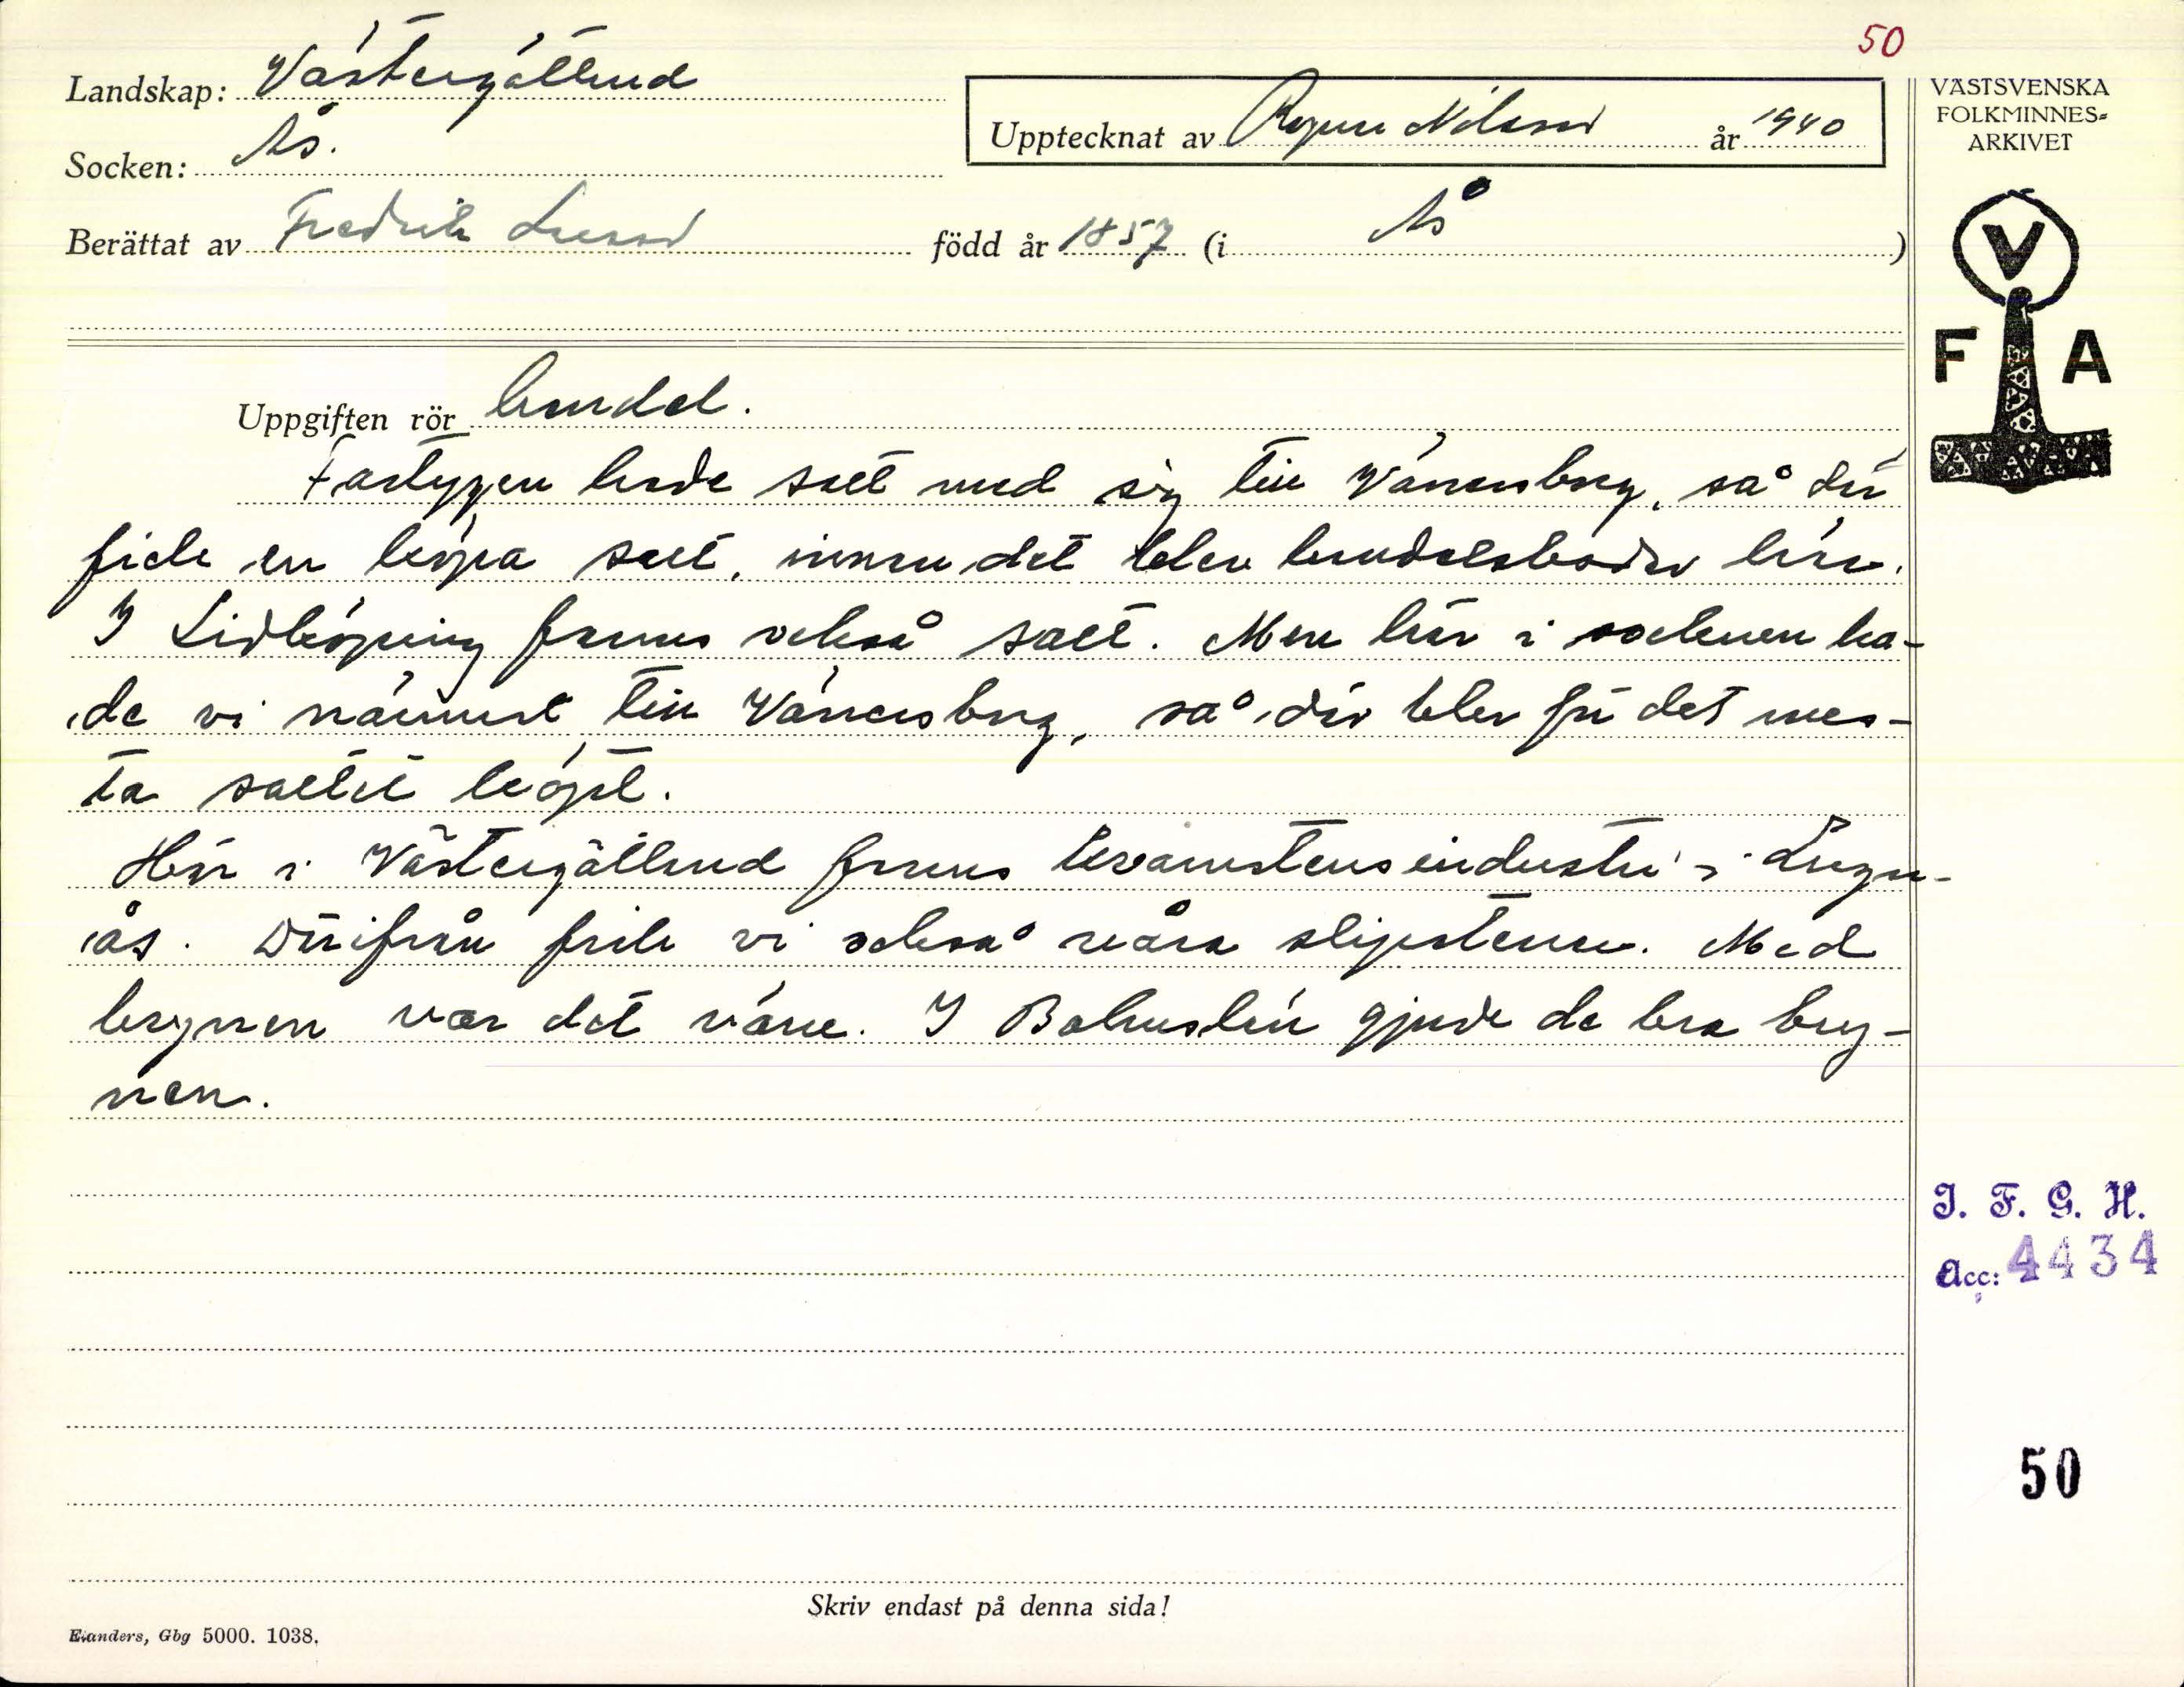 50
Landskap: Västergötland
Socken: Ås.
Upptecknat av Ragnar Nilsson år 1940
Berättat av Fredrik Larsson född år 1857 (i Ås)
VÄSTSVENSKA
FOLKMINNES-
ARKIVET
V
F A
Uppgiften rör handel.
Fartygen hade salt med sig till Vänersborg, så där
fick en köpa salt, innan det blev handelsbodar här.
I Lidköping fanns också salt. Men här i socknen ha-
de vi närmast till Vänersborg, så där blev för det mes-
ta saltet köpt.
Här i Västergötland fanns kvarnstensindustri i Lugn-
ås. Därifrån fick vi också våra slipstenar. Med
brynen var det värre. I Bohuslän gjorde de bra bry-
nen.
I. F. G. H.
Acc: 4434
50
Skriv endast på denna sida!
Elanders, Gbg 5000. 1038.